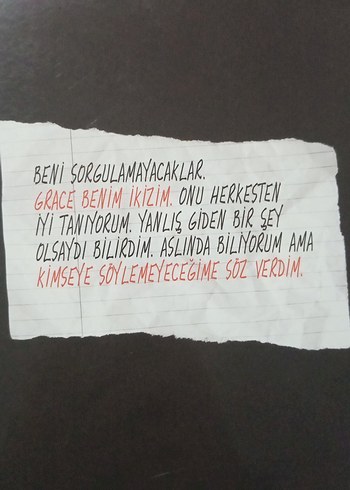 BENİ SORGULAMAYACAKLAR.
GRACE BENİM İKİZİM. ONU HERKESTEN
İYİ TANIYORUM. YANLIŞ GİDEN BİR ŞEY
OLSAYDI BİLİRDİM. ASLINDA BİLİYORUM AMA
KİMSEYE SÖYLEMEYECEĞİME SÖZ VERDİM.